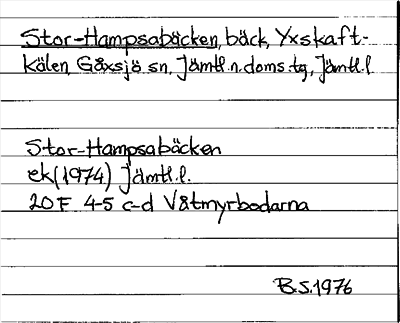 Stor-Hampsabäcken, bäck, Yxskaft-
kälen, Gåxsjö sn, Jämtl.n.doms.tg, Jämtl.l.
Stor-Hampsabäcken
ek(1974) Jämtl.l.
20F 4-5 c-d Våtmyrbodarna
B.S.1976